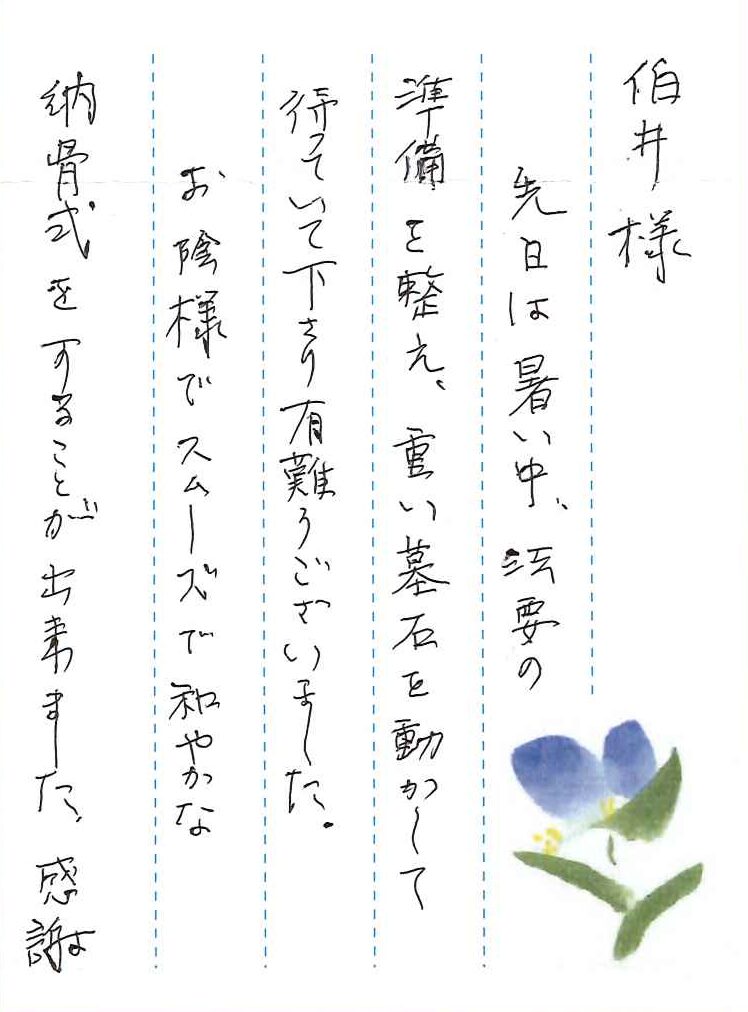 伯井様
先日は暑い中、法要の
準備を整え、重い墓石を動かして
待っていて下さり有難うございました。
お陰様でスムーズで和やかな
納骨式をすることが出来ました。感謝